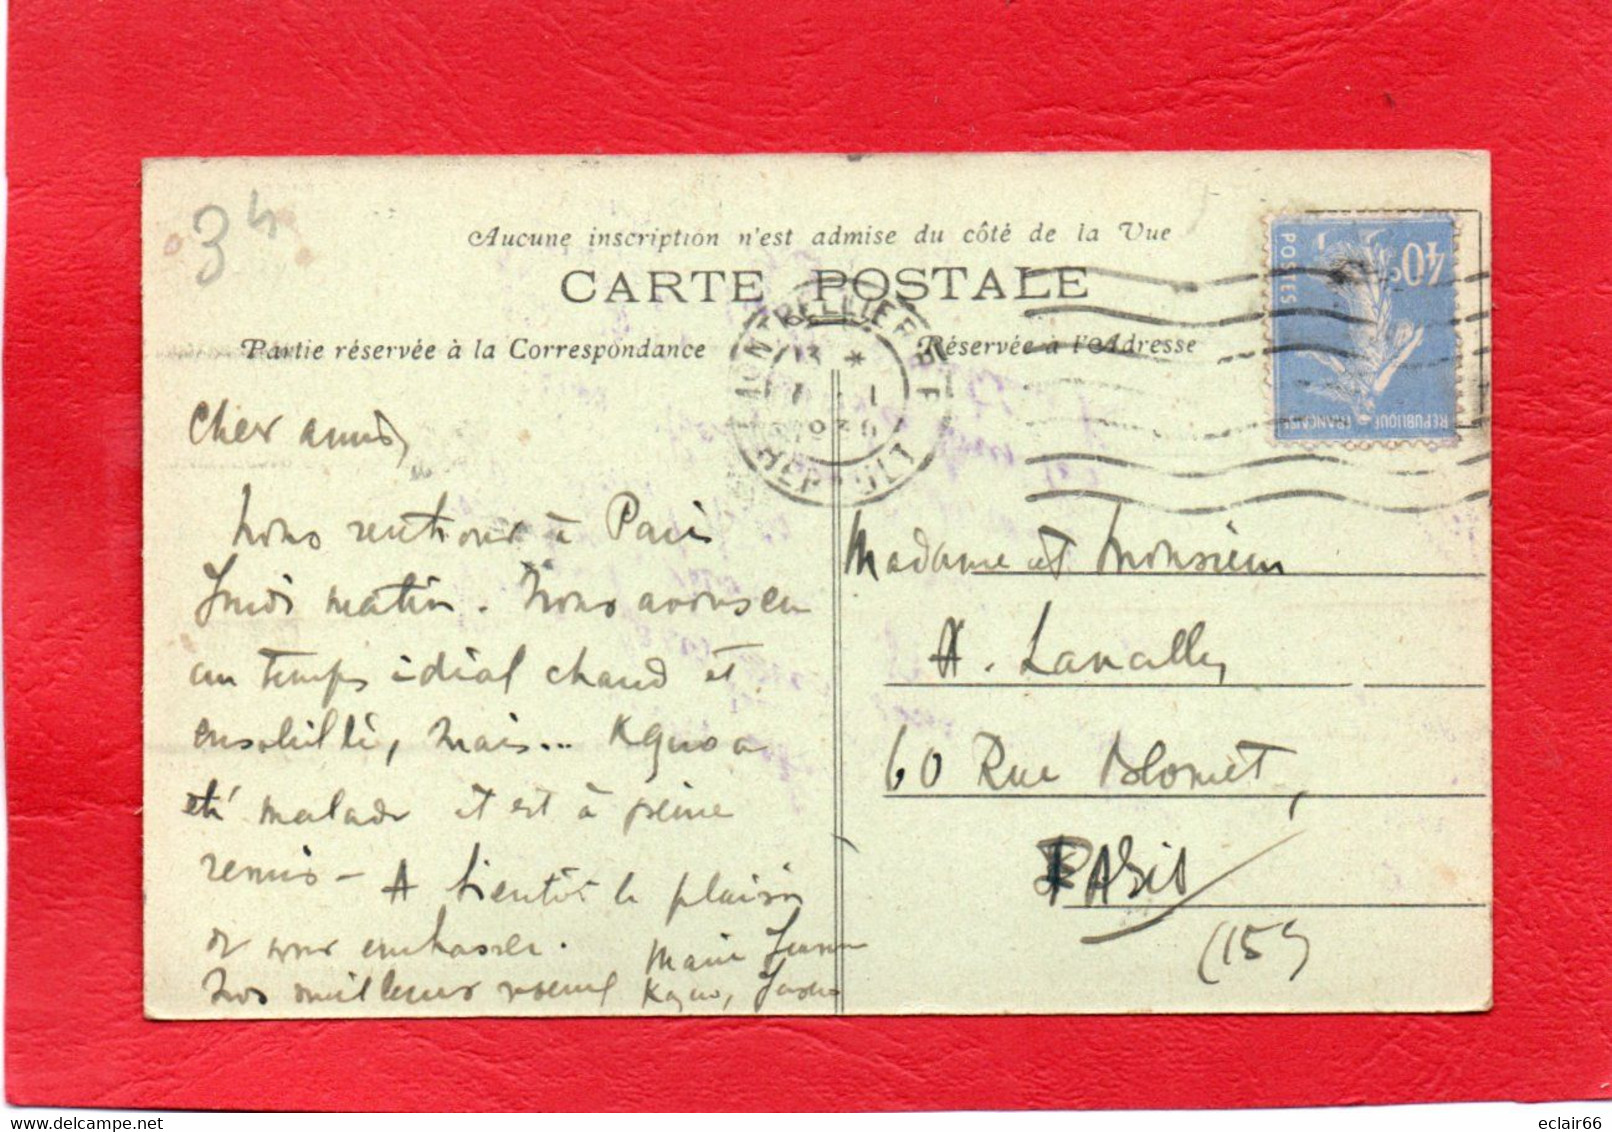 34
Aucune inscription n'est admise du côté de la Vue
CARTE POSTALE
Partie réservée à la Correspondance
Réservée à l'Adresse
MONTPELLIER
13 *
HERAULT
POSTES
40c
REPUBLIQUE FRANÇAISE
Cher amis,
Nous rentrons à Paris
Jeudi matin. Nous avons eu
un temps idéal chaud et
ensoleillé, mais...
été malade et est à peine
remis - A bientôt le plaisir
de vous embrasser.
Nos meilleurs voeux
Madame et Monsieur
A.
60 Rue Blomet,
PARIS
(15)
eclair66